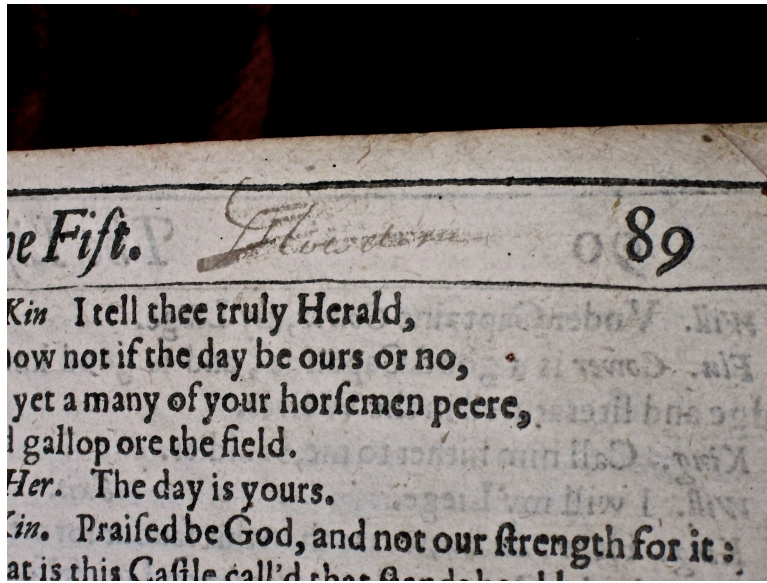 he Fift. 89
Kin I tell thee truly Herald,
now not if the day be ours or no,
yet a many of your horſemen peere,
d gallop ore the field.
Her. The day is yours.
Kin. Praiſed be God, and not our ſtrength for it:
at is this Caſtle call'd that ſtands hard by